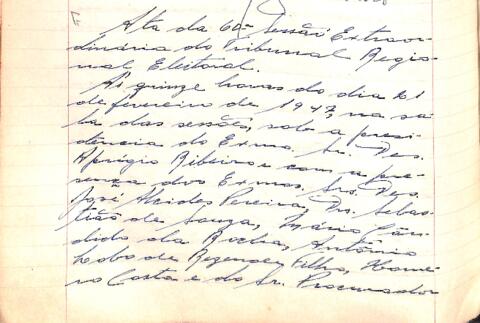 Ata da 60ª Sessão Extraor-
dinária do Tribunal Regio-
nal Eleitoral.
Às quinze horas do dia 21
de fevereiro de 1947, na sa-
la das sessões, sob a presi-
dência do Exmo. Sr. Des.
Aprígio Ribeiro e com a pre-
sença dos Exmos. Srs. Des.
José Alcides Pereira, Drs. Sebas-
tião de Souza, Mário Cân-
dido da Rocha, Antônio
Lobo de Rezende Filho, Home-
ro Costa e do Sr. Procurador